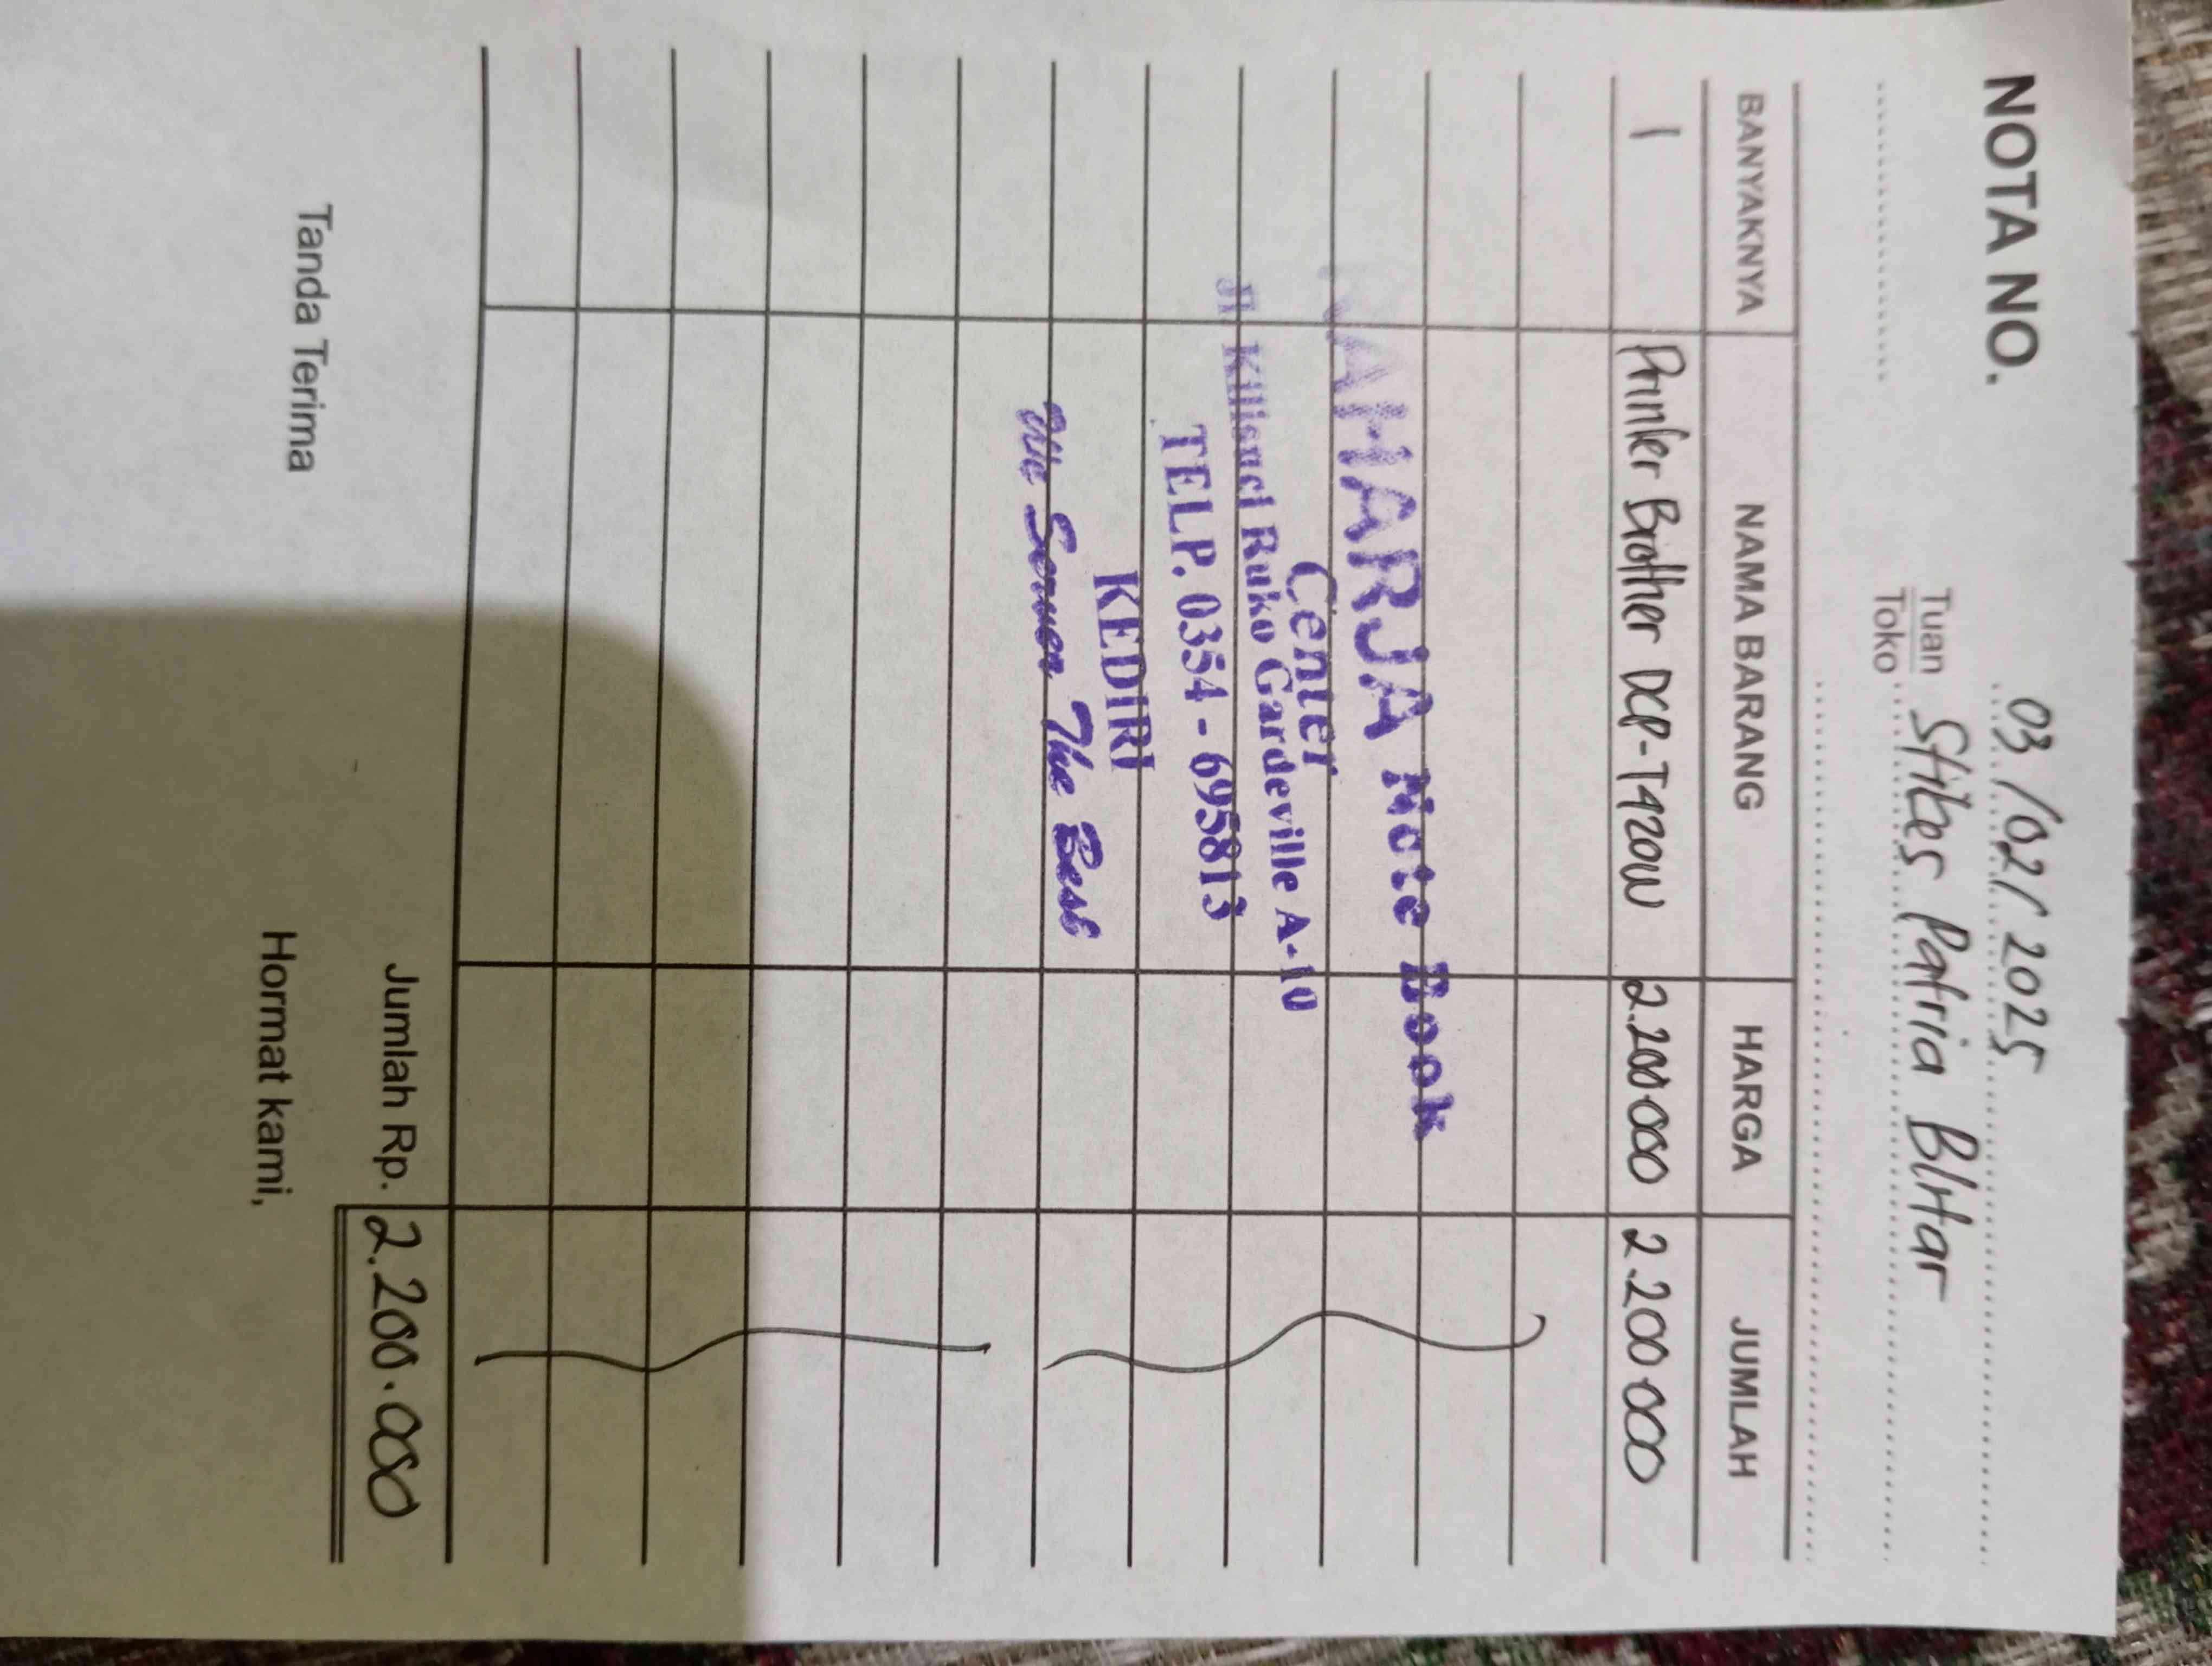 03/02/2025
NOTA NO.
Tuan
Toko
Stikes Patria Blitar
BANYAKNYA NAMA BARANG HARGA JUMLAH
1 Printer Brother DCP-T420W 2.200.000 2.200.000
RAHARJA Note Book
Center
Jl. Kilisuci Ruko Gardeville A-10
TELP. 0354 - 695813
KEDIRI
The Best
Jumlah Rp. 2.200.000
Tanda Terima Hormat kami,